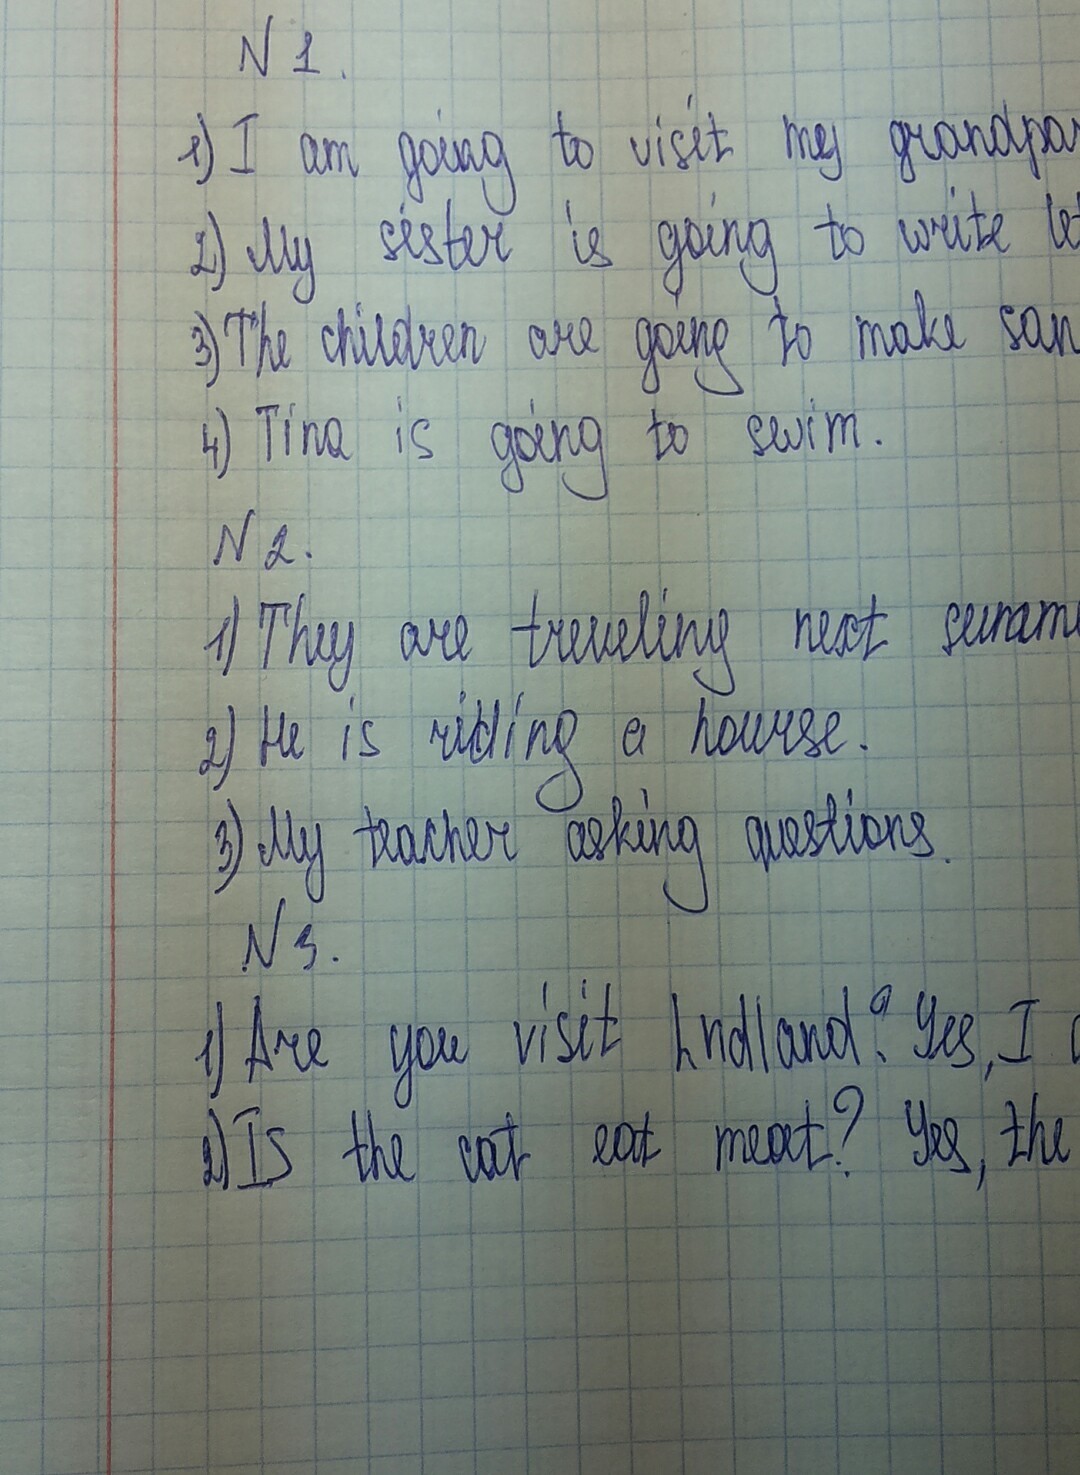 N 1.
1) I am going to visit my grandpar
2) My sister is going to write let
3) The children are going to make san
4) Tina is going to swim.
N 2.
1) They are treveling next summe
2) He is riding a hourse.
3) My teacher asking questions.
N 3.
1) Are you visit Lndland? Yes, I a
2) Is the cat eat meat? Yes, the